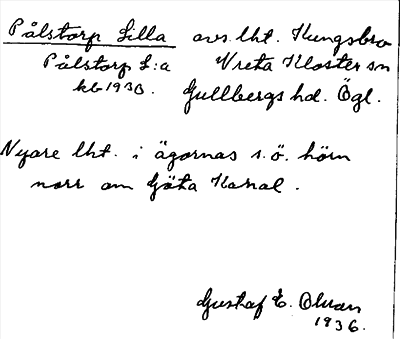 Pålstorp Lilla avs. lht. Kungsbro
Pålstorp L:a Vreta Kloster sn
kb 1930. Gullbergs hd. Ögl.
Nyare lht. i ägornas s.ö. hörn
norr om Göta Kanal.
Gustaf E. Olsson
1936.